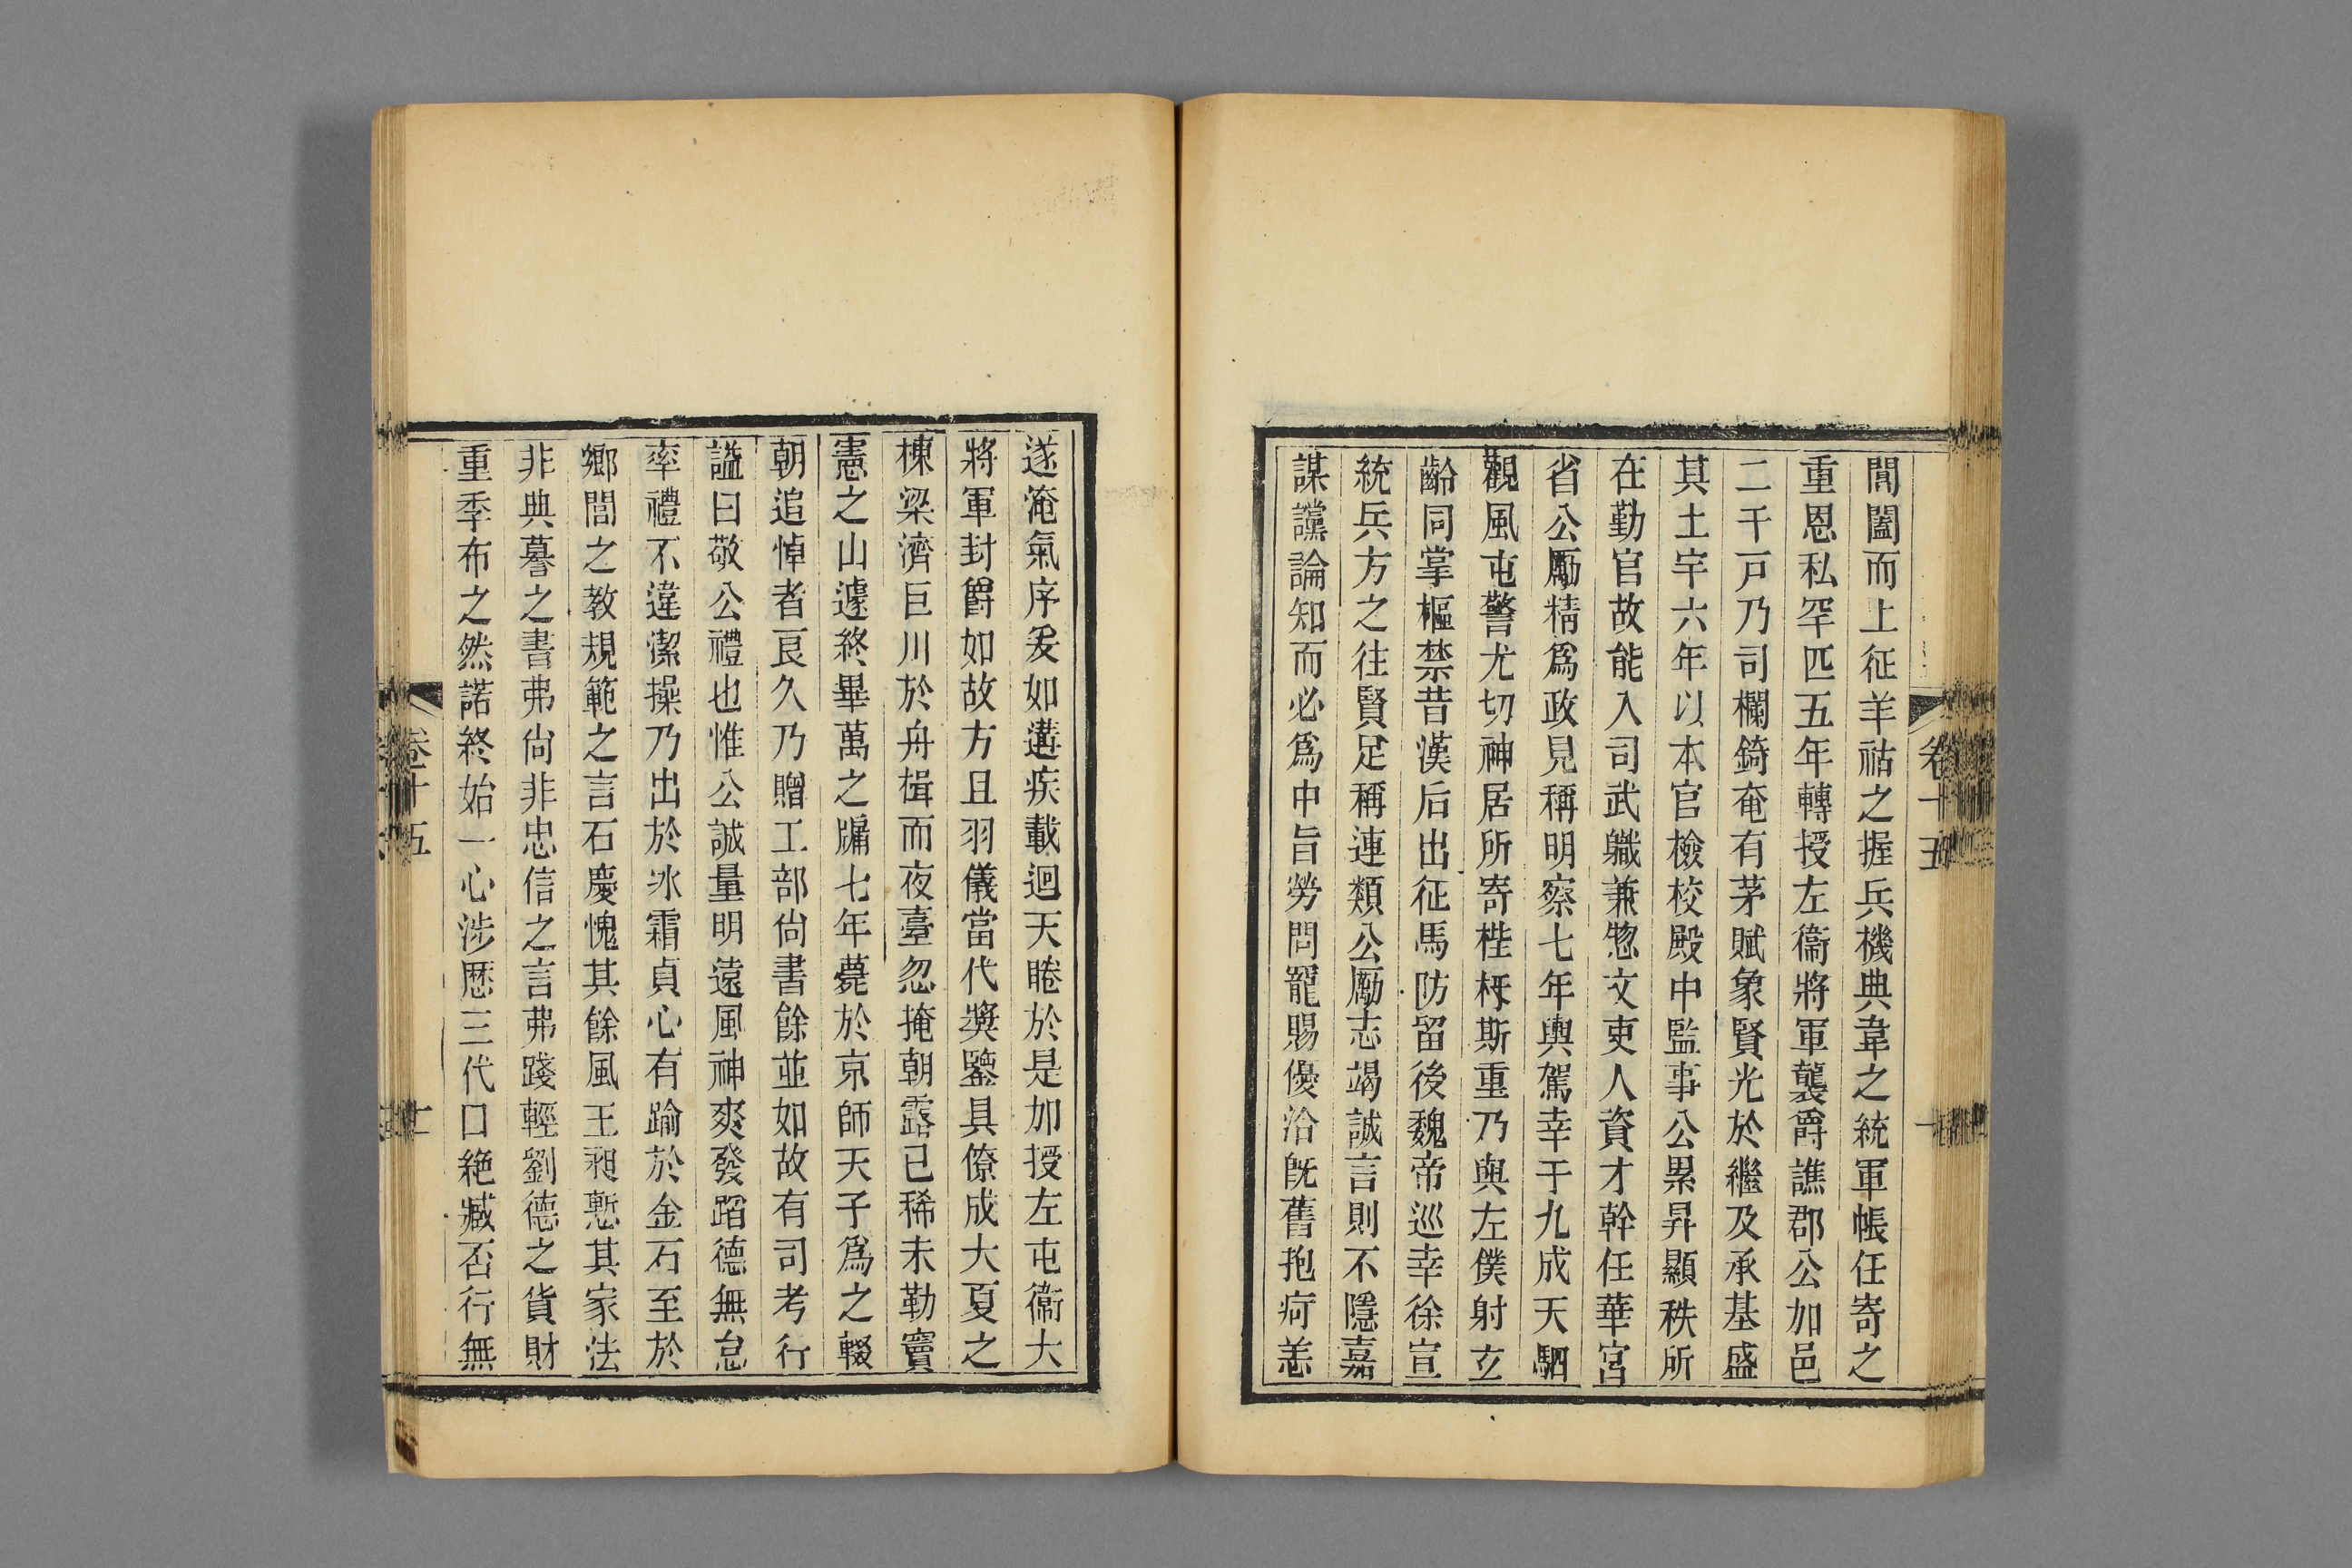 閶闔而上征羊祜之握兵機典韋之統軍帳任寄之
重恩私罕匹五年轉授左衞將軍襲爵譙郡公加邑
二千戸乃司欄錡奄有茅賦象賢光於繼及承基盛
其土宇六年以本官檢校殿中監事公累昇顯秩所
在勤官故能入司武職兼惣文吏人資才幹任華宮
省公勵精爲政見稱明察七年輿駕幸于九成天駟
觀風屯警尤切神居所寄梐枑斯重乃與左僕射玄
齡同掌樞禁昔漢后出征馬防留後魏帝巡幸徐宣
統兵方之往賢足稱連類公勵志竭誠言則不隱嘉
謀讜論知而必爲中旨勞問寵賜優洽旣舊抱疴恙
卷十五
遂淹氣序爰如遘疾載迴天睠於是加授左屯衞大
將軍封爵如故方且羽儀當代奬鑒具僚成大夏之
棟梁濟巨川於舟楫而夜臺忽掩朝露已稀未勒竇
憲之山遽終畢萬之牖七年薨於京師天子爲之輟
朝追悼者良久乃贈工部尙書餘並如故有司考行
謚曰敬公禮也惟公誠量明遠風神爽發蹈德無怠
率禮不違潔操乃出於冰霜貞心有踰於金石至於
鄉閭之教規範之言石慶愧其餘風王昶慙其家法
非典謩之書弗尙非忠信之言弗踐輕劉德之貨財
重季布之然諾終始一心涉歷三代口絶臧否行無
卷十五